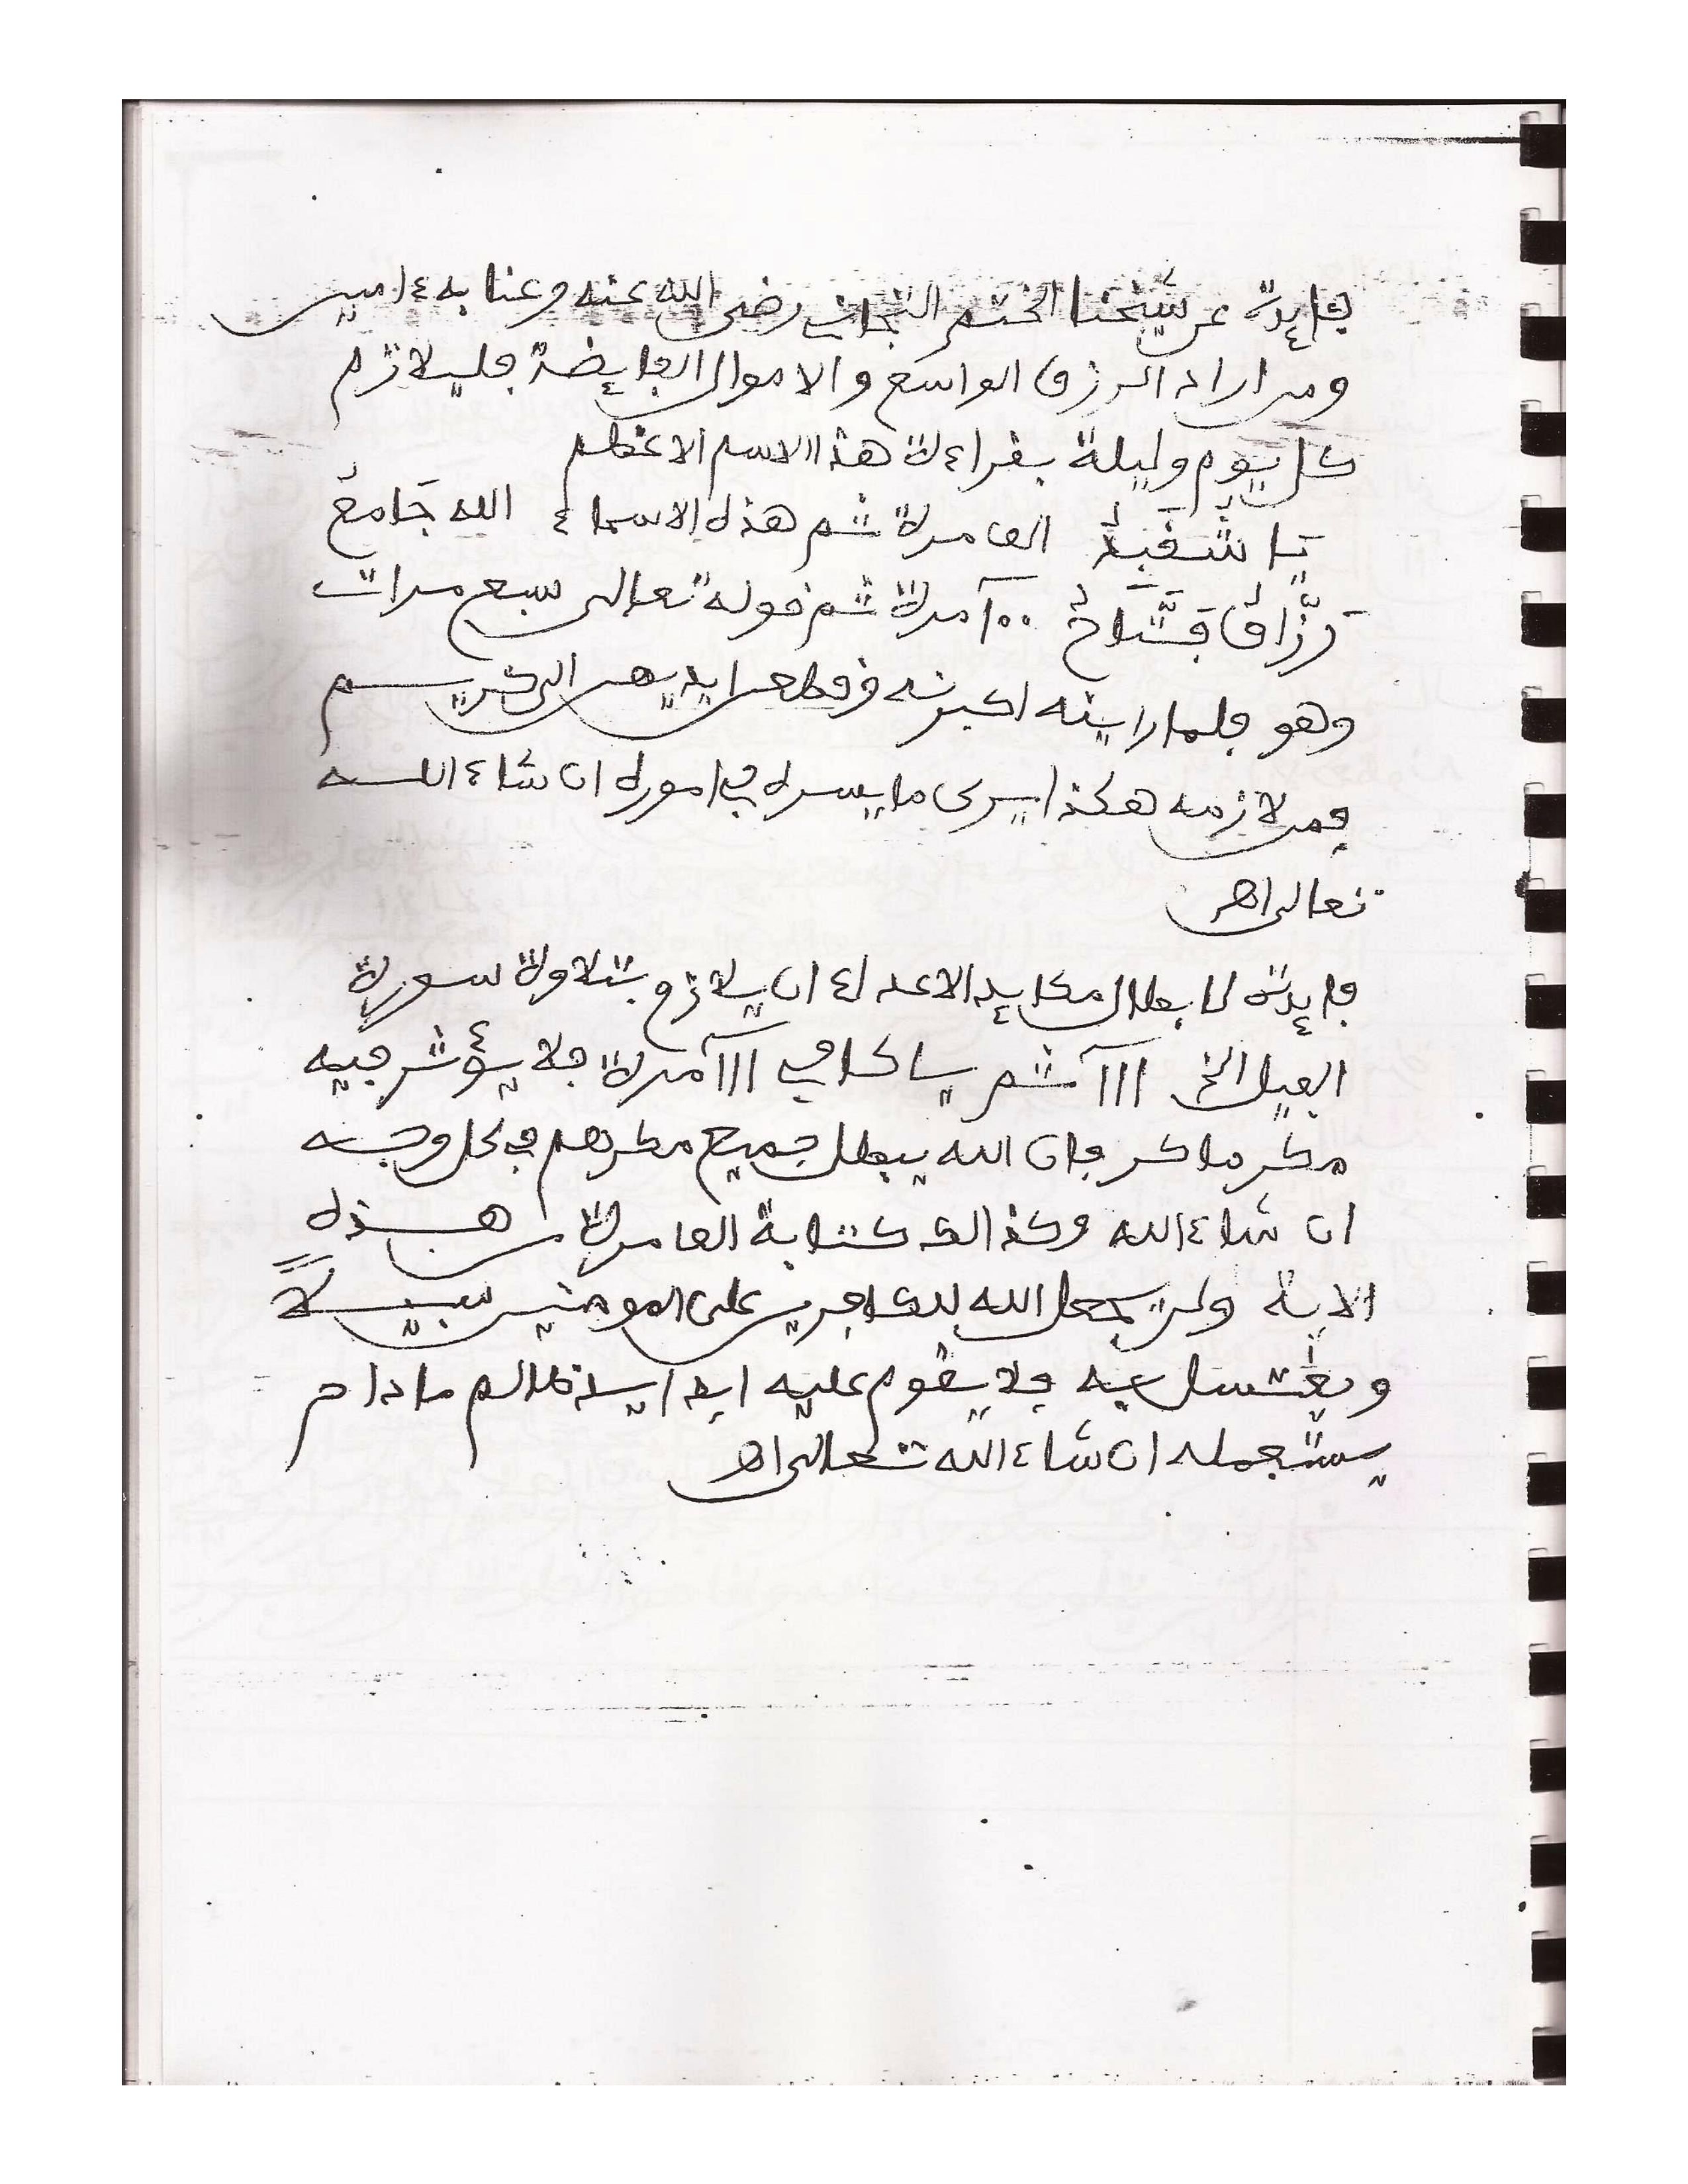 فايدة عن شيخنا الختم التجاني رضى الله عنه وعنا به ءامين
ومن اراد الرزق الواسع والاموال الفايضة فليلازم
كل يوم وليلة بقراءة هذا الاسم الاعظم
الفا مرة ثم هذه الاسماء الله جَامعُ
رَزَّاقُ فَتَّاحُ ١٠٠ مرة ثم قوله تعالى سبع مرات
وهو فلما راينه اكبرنه وقطعن ايديهن الى كريم
فمن لازمه هكذا يرى ما يسره في اموره ان شاء الله
تعالى اهـ
فايدة لابطال مكايد الاعداء ان يلازم بتلاوة سورة
الفيل الخ ااا ثم يا كافي ااا مرة فلا يؤثر فيه
مكر ماكر فان الله يبطل جميع مكرهم في كل وجه
ان شاء الله وكذالك كتابة الفا مرة من هذه
الاية ولن يجعل الله للكافرين على المومنين سبيلاً
ويغتسل به فلا يقوم عليه ابدا يد ظالم مادام
يستعمله ان شاء الله تعالى اهـ